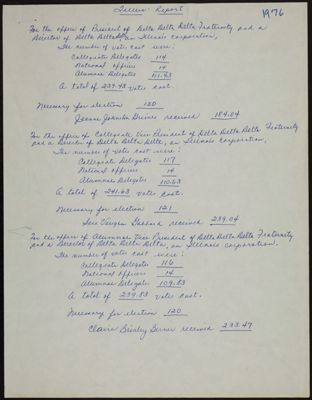 Tellers Report
1976
For the office of President of Delta Delta Delta Fraternity and a
Director of Delta Delta Delta, an Illinois corporation,
The number of votes cast were:
Collegiate Delegates 114
National Officers 14
Alumnae Delegates 111.43
A total of 239.43 votes cast.
Necessary for election 120
Jeanne Johnston received 184.04
For the office of Collegiate Vice President of Delta Delta Delta Fraternity
and a Director of Delta Delta Delta, an Illinois corporation,
The number of votes cast were:
Collegiate Delegates 117
National Officers 14
Alumnae Delegates 110.63
A total of 241.63 votes cast.
Necessary for election 121
received 239.04
For the office of Alumnae Vice President of Delta Delta Delta Fraternity
and a Director of Delta Delta Delta, an Illinois corporation.
The number of votes cast were:
Collegiate Delegates 116
National Officers 14
Alumnae Delegates 109.83
A total of 239.83 votes cast.
Necessary for election 120
Claire received 233.47